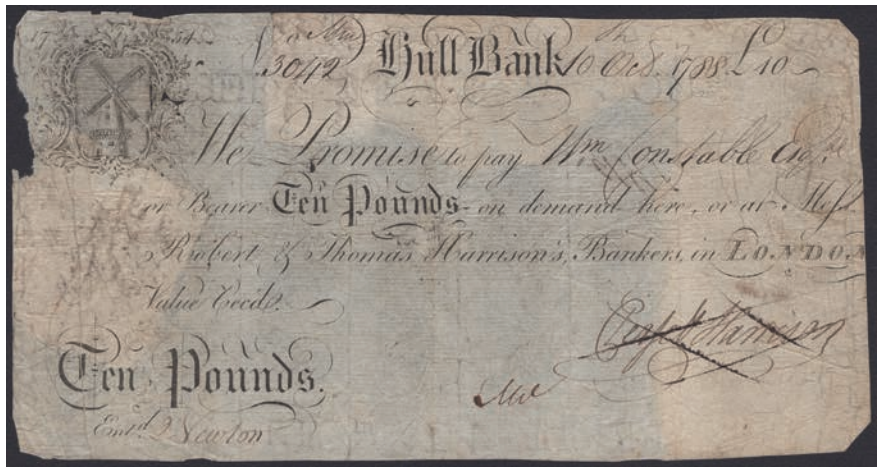 17 54
No 3042 Hull Bank 10th Octr. 1788 £ 10
We Promise to pay Wm Constable Esqr.
or Bearer Ten Pounds on demand here, or at Messrs.
Robert & Thomas Harrison's, Bankers, in LONDON
Value Recd.
Ten Pounds.
Entd. Newton